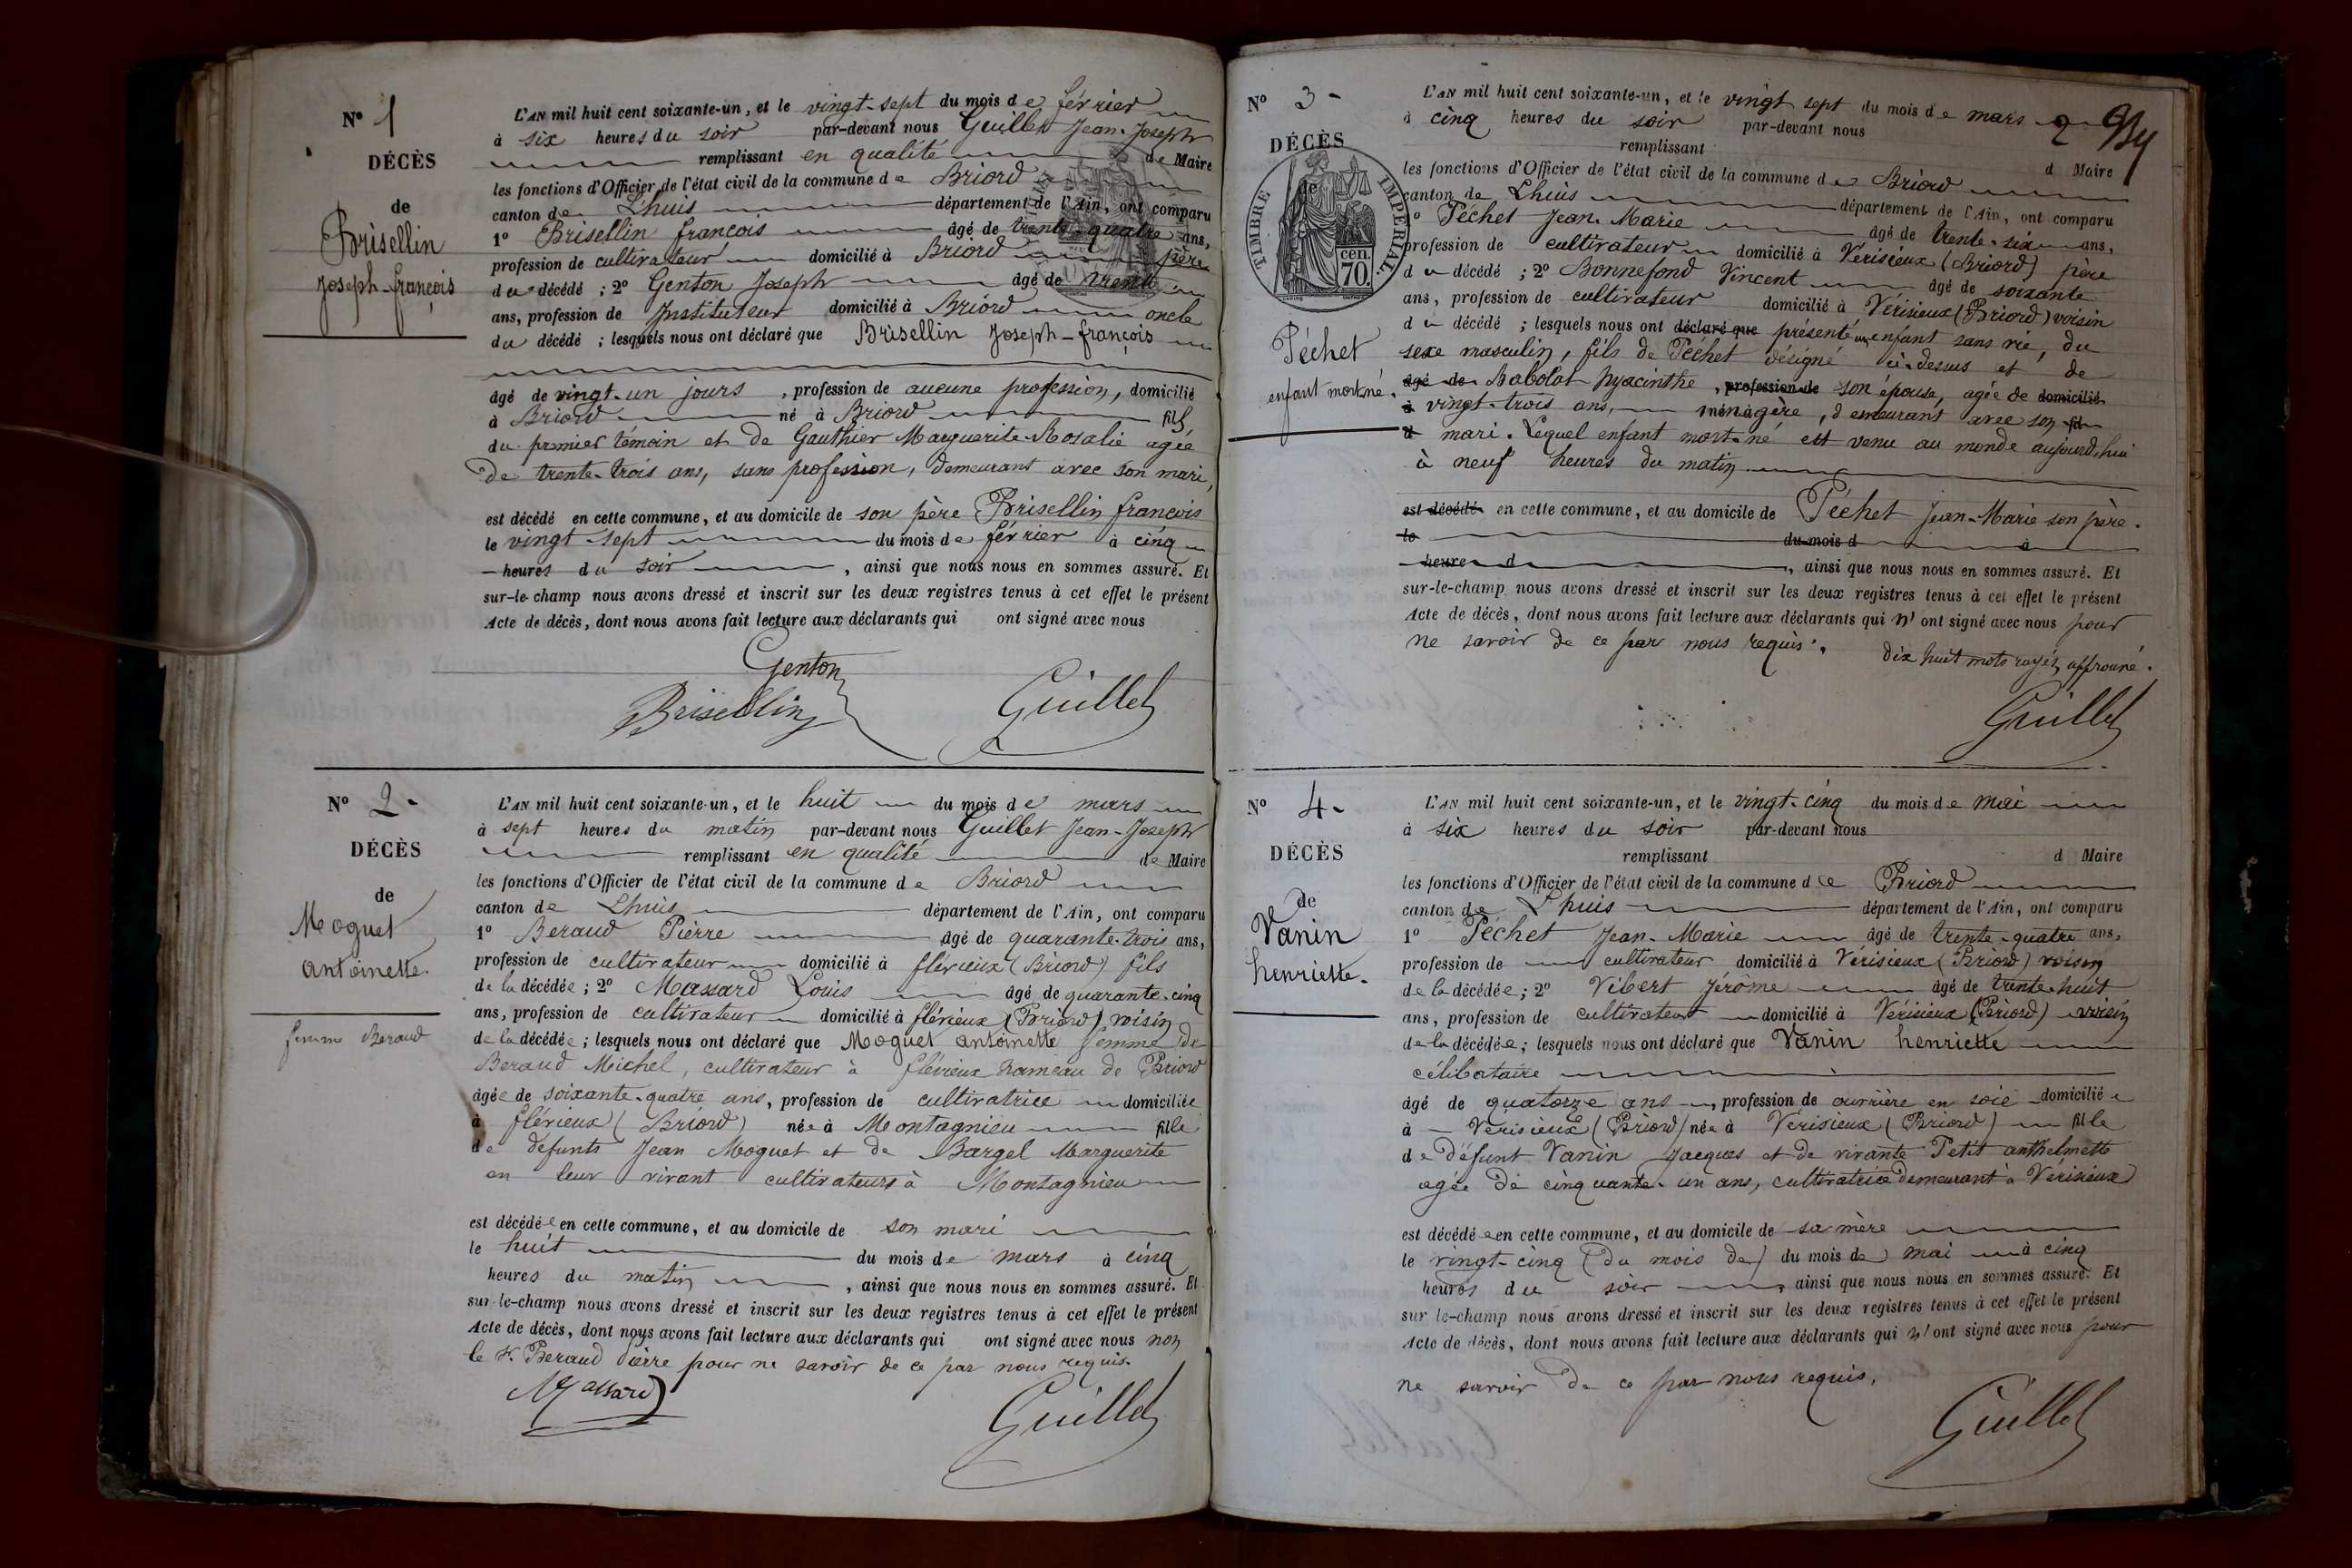 N° 1
DÉCÈS
de
Brisellin
Joseph-françois
L'AN mil huit cent soixante-un, et le vingt-sept du mois de février
à six heures du soir par-devant nous Guillet Jean-Joseph
remplissant en qualité de Maire
les fonctions d'Officier de l'état civil de la commune de Briord
canton de Lhuis département de l'Ain, ont comparu
1° Brisellin françois âgé de trente-quatre ans,
profession de cultivateur domicilié à Briord père
du décédé ; 2° Genton Joseph âgé de trente
ans, profession de Instituteur domicilié à Briord oncle
du décédé ; lesquels nous ont déclaré que Brisellin Joseph-françois
âgé de vingt-un jours, profession de aucune profession, domicilié
à Briord né à Briord fils
du premier témoin et de Gauthier Marguerite-Rosalie agée
de trente-trois ans, sans profession, demeurant avec son mari,
est décédé en cette commune, et au domicile de son père Brisellin françois
le vingt-sept du mois de février à cinq
heures du soir, ainsi que nous nous en sommes assuré. Et
sur-le-champ nous avons dressé et inscrit sur les deux registres tenus à cet effet le présent
Acte de décès, dont nous avons fait lecture aux déclarants qui ont signé avec nous
Genton
Brisellin Guillet
N° 2
DÉCÈS
de
Moguet
antoinette.
femme Beraud
L'AN mil huit cent soixante-un, et le huit du mois de mars
à sept heures du matin par-devant nous Guillet Jean-Joseph
remplissant en qualité de Maire
les fonctions d'Officier de l'état civil de la commune de Briord
canton de Lhuis département de l'Ain, ont comparu
1° Beraud Pierre âgé de quarante-trois ans,
profession de cultivateur domicilié à flérieux (Briord) fils
de la décédée ; 2° Massard Louis âgé de quarante-cinq
ans, profession de cultivateur domicilié à flérieux (Briord) voisin
de la décédée ; lesquels nous ont déclaré que Moguet antoinette femme de
Beraud Michel, cultivateur à flérieux hameau de Briord
âgée de soixante-quatre ans, profession de cultivatrice domiciliée
à flérieux (Briord) née à Montagnieu fille
de defunts Jean Moguet et de Bargel Marguerite
en leur vivant cultivateurs à Montagnieu
est décédée en cette commune, et au domicile de son mari
le huit du mois de mars à cinq
heures du matin, ainsi que nous nous en sommes assuré. Et
sur-le-champ nous avons dressé et inscrit sur les deux registres tenus à cet effet le présent
Acte de décès, dont nous avons fait lecture aux déclarants qui ont signé avec nous non
le sr. Beraud Pierre pour ne savoir de ce par nous requis.
Massard Guillet
2
N° 3
DÉCÈS
de
TIMBRE IMPERIAL.
cen. 70.
Péchet
enfant mortné.
L'AN mil huit cent soixante-un, et le vingt sept du mois de mars
à cinq heures du soir par-devant nous
remplissant d Maire
les fonctions d'Officier de l'état civil de la commune de Briord
canton de Lhuis département de l'Ain, ont comparu
1° Péchet Jean-Marie âgé de trente-six ans,
profession de cultivateur domicilié à Vérisieux (Briord) père
du décédé ; 2° Bonnefond Vincent âgé de soixante
ans, profession de cultivateur domicilié à Vérisieux (Briord) voisin
du décédé ; lesquels nous ont déclaré que présenté un enfant sans vie, du
sexe masculin, fils de Péchet désigné ci-dessus et de
âgé de Babolat hyacinthe, profession de son épouse, agée de domicilié
à vingt-trois ans, ménagère, demeurant avec son fil
d mari. Lequel enfant mort-né est venu au monde aujourd'hui
à neuf heures du matin
est décédé en cette commune, et au domicile de Péchet Jean-Marie son père.
le du mois d à
heure d, ainsi que nous nous en sommes assuré. Et
sur-le-champ nous avons dressé et inscrit sur les deux registres tenus à cet effet le présent
Acte de décès, dont nous avons fait lecture aux déclarants qui n'ont signé avec nous pour
ne savoir de ce par nous requis. dix huit mots rayés, approuvé.
Guillet
N° 4
DÉCÈS
de
Vanin
henriette.
L'AN mil huit cent soixante-un, et le vingt-cinq du mois de mai
à six heures du soir par-devant nous
remplissant d Maire
les fonctions d'Officier de l'état civil de la commune de Briord
canton de Lhuis département de l'Ain, ont comparu
1° Péchet Jean-Marie âgé de trente-quatre ans,
profession de cultivateur domicilié à Vérisieux (Briord) voisin
de la décédée ; 2° Vibert Jérôme âgé de trente-huit
ans, profession de cultivateur domicilié à Vérisieux (Briord) voisin
de la décédée ; lesquels nous ont déclaré que Vanin henriette
célibataire
âgé de quatorze ans, profession de ouvrière en soie domiciliée
à Vérisieux (Briord) née à Vérisieux (Briord) fille
de défunt Vanin Jacques et de vivante Petit anthelmette
agée de cinquante-un ans, cultivatrice demeurant à Vérisieux
est décédée en cette commune, et au domicile de sa mère
le vingt-cinq (du mois de) du mois de mai à cinq
heures du soir, ainsi que nous nous en sommes assuré. Et
sur-le-champ nous avons dressé et inscrit sur les deux registres tenus à cet effet le présent
Acte de décès, dont nous avons fait lecture aux déclarants qui n'ont signé avec nous pour
ne savoir de ce par nous requis.
Guillet